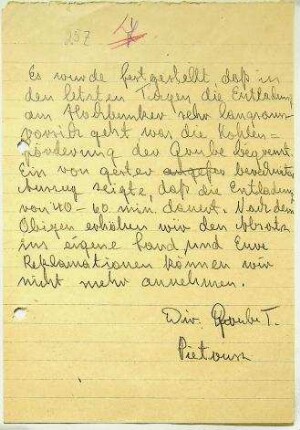 257
Es wurde festgestellt daß in
den letzten Tagen die Entladung
am Hochbunker sehr langsam
vorsich geht was die Kohlen=
förderung der Grube begrenzt.
Ein von gestern berechneter
Auszug zeigte, daß die Entladung
von 40-60 min. dauert. Nach dem
Obigen erhöhen wir den Absatz
ins eigene Land und Eure
Reklamationen können wir
nicht mehr annehmen.
Dir. Grube T.